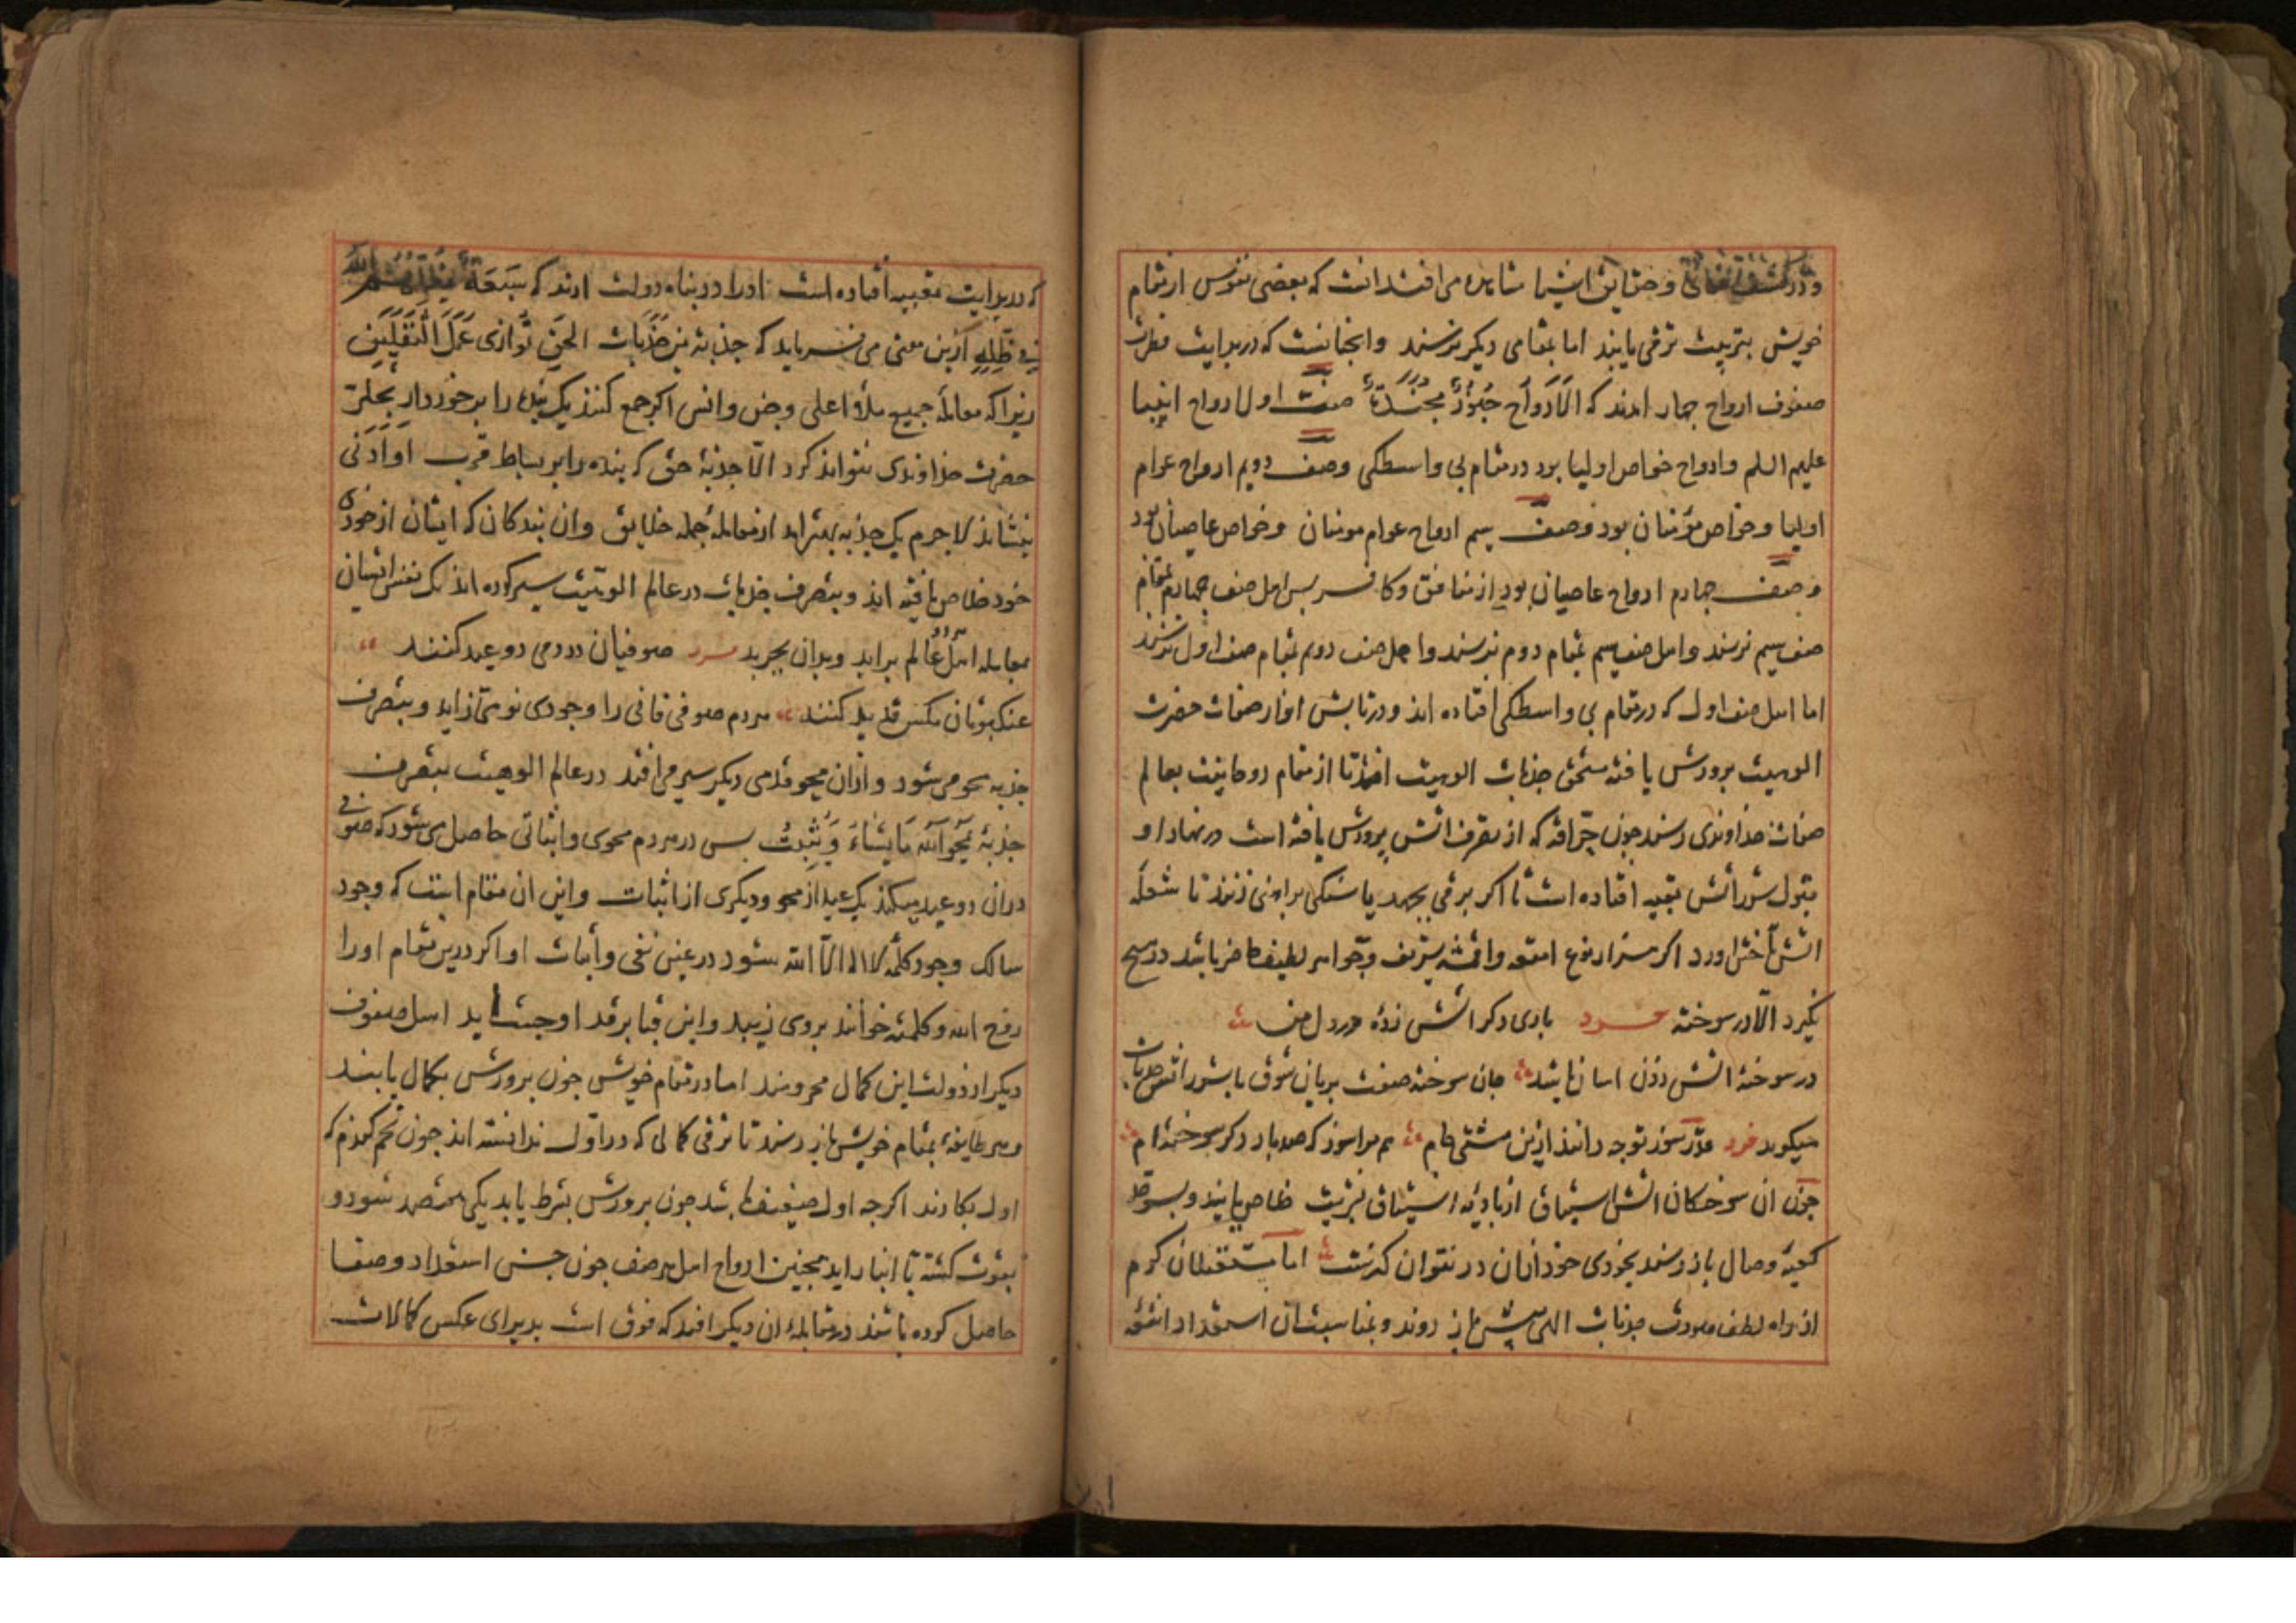 و حقایق اشیا مشاهده می افتد انست که بعضی نفوس از مقام
خویش بتربیت ترقی یابند اما بمقامی دیکر نرسند وانجنانست که در بدایت فطرت
صفوف ارواح جهار امدند که اَلاَرْوَاح جُنُودٌ مُجَنَّدَةٌ صف اول ارواح انبیا
علیهم السلم وارواح خواص اولیا بود در مقام بی واسطکی وصف دویم ارواح عوام
اولیا وخواص مؤمنان بود وصف سیم ارواح عوام مومنان وخواص عاصیان بود
وصف جهارم ارواح عاصیان بود از منافق وکافر بس اهل صف جهارم بمقام
صف سیم نرسند واهل صف سیم بمقام دوم نرسند واهل صف دویم بمقام صف اول نرسند
اما اهل صف اول که در مقام بی واسطکی افتاده اند ودر تابش انوار صفات حضرت
الوهیت برورش یافته مستحق جذبات الوهیت افتند تا از مقام روحانیت بعالم
صفات خداوندی رسند جون حرّاقه که از تصرف اتش برورش یافته است در نهاد او
قبول شرر اتش تعبیه افتاده است تا اکر برقی بجهد یا سنکی بر اهنی زنند تا شعله
اتش اورد اکر هزار نوع امتعه واقمشه شریف وجواهر لطیف حاضر باشد در هیج
نکیرد الّا در سوخته فرد باری دکر اتش زده در دل من
در سوخته اتش زدن اسان باشد جان سوخته صفت بریان شوق با شرر اتش جذبات
میکوید فرد هم مرا سوز که صد بار دکر سوخته ام
جون ان سوختکان اتش اشتیاق از بادیه اشتیاق بشریت خلاص یابند و
کعبه وصال باز رسند بخودی خود ازان در نتوان کذشت اما کرم
از راه لطف جذبات الهی بیش باز روند وبمناسبت ان استعداد اتش
که در بدایت تعبیه افتاده است اورا در بناه دولت ارند که سَبْعَةٌ یُظِلُّهُمُ اللّٰه
فِی ظِلِّهِ ازین معنی می فرماید که جذبة من جَذَبات الحق تُوازی عَمَلَ الثَّقَلَیْن
زیرا که معامله جمیع ملأ اعلی وجن وانس اکر جمع کنند یک بنده را برخوردار تجلی
حضرت خداوندی نتواند کرد الّا جذبهٔ حق که بنده را بر بساط قرب اَوْ اَدْنی
بنشاند لاجرم یک جذبه بهتر اید از معاملهٔ جمله خلایق وان بندکان که ایشان از خودی
خود خلاص یافته اند وبتصرف جذبات در عالم الوهیت سیر کرده اند یک نفس ایشان
بمعامله اهل عالم براید وبدان بجربد فرد صوفیان در دمی دو عید کنند
عنکبوتان مکس قدید کنند هر دم صوفی فانی را وجودی نو می زاید وبتصرف
جذبه محو می شود وازان محو قدمی دیکر سیر می افتد در عالم الوهیت بتصرف
جذبهٔ یَمْحُو اللّٰه مَا یَشَاءُ وَیُثْبِتُ بس در هر دم محوی واثباتی حاصل می شود که صوفی
دران دو عید میکند یک عید از محو ودیکری از اثبات واین ان مقام است که وجود
سالک وجود کلمه لا اله الّا الله شود در عین نفی واثبات او اکر درین مقام اورا
روح الله وکلمته خوانند بروی زیبد واین قبا بر قد او جست اید اهل صفوف
دیکر از دولت این کمال محرومند اما در مقام خویش جون برورش بکمال یابند
وهر طایفهٔ بمقام خویش باز رسند تا ترقی کمالی که در اوّل ندانسته اند جون تخم کندم که
اول بکارند اکرجه اول ضعیف باشد جون برورش بشرط یابد یکی هفتصد شود و
بقوت کشته تا انبار اید همجنین ارواح اهل هر صف جون حسن استعداد وصفا
حاصل کرده باشند در مقابلهٔ ان دیکر افتد که فوق است بذیرای عکس کمالات